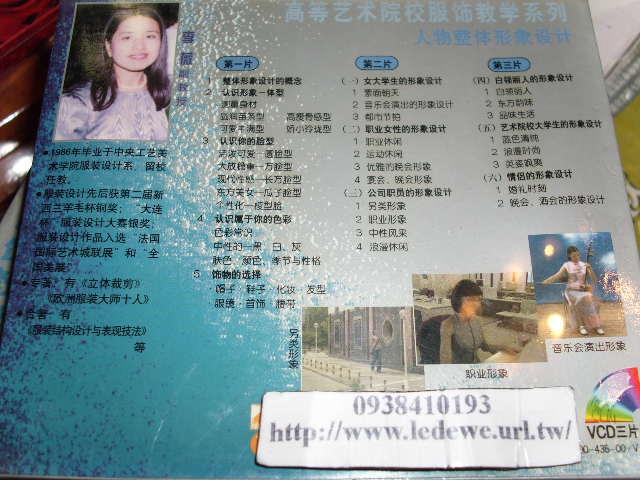 高等艺术院校服饰教学系列
人物整体形象设计
副教授
•1986年毕业于中央工艺美
术学院服装设计系，留校
任教。
•服装设计先后获第二届新
西兰羊毛杯铜奖；"大连
杯"服装设计大赛银奖；
服装设计作品入选"法国
国际艺术城联展"和"全
国美展"
•专著：有《立体裁剪》
《欧洲服装大师十人》
•合著：有
《服装结构设计与表现技法》
等
第一片
1 整体形象设计的概念
2 认识形象－体型
测量身材
圆润苗条型 高瘦骨感型
可爱丰满型 娇小玲珑型
3 认识你的脸型
活泼可爱－圆脸型
大放脸重－方脸型
现代性感－长方脸型
东方美女－瓜子脸型
个性化－棱型脸
4 认识属于你的色彩
色彩常识
中性的－黑、白、灰
肤色、颜色、季节与性格
5 饰物的选择
帽子、鞋子、化妆、发型
眼镜、首饰、腰带
第二片
（一）女大学生的形象设计
1 素面朝天
2 音乐会演出的形象设计
3 都市节拍
（二）职业女性的形象设计
1 职业休闲
2 运动休闲
3 优雅的晚会形象
4 宴会、晚会形象
（三）公司职员的形象设计
1 另类形象
2 职业形象
3 中性风采
4 浪漫休闲
第三片
（四）白领丽人的形象设计
1 白领丽人
2 东方韵味
3 品味生活
（五）艺术院校大学生的形象设计
1 蓝色清纯
2 浪漫时尚
3 英姿飒爽
（六）情侣的形象设计
1 婚礼时刻
2 晚会、酒会的形象设计
另类形象
职业形象
音乐会演出形象
0938410193
http://www.ledewe.url.tw/
VCD三片
00-436-00/V